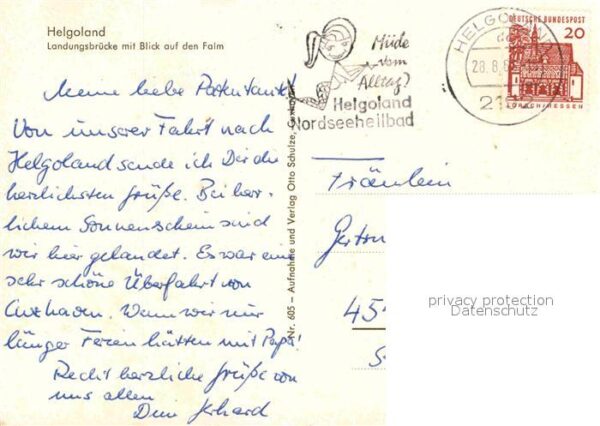 Helgoland
Landungsbrücke mit Blick auf den Falm
Meine liebe Patentante!
Von unserer Fahrt nach
Helgoland sende ich Dir die
herzlichsten Grüße. Bei herr-
lichem Sonnenschein sind
wir hier gelandet. Es war eine
sehr schöne Überfahrt von
Cuxhaven. Wenn wir nur
länger Ferien hätten mit Papi!
Recht herzliche Grüße von
uns allen
Dein Gerhard
Nr. 605 — Aufnahme und Verlag Otto Schulze,
Müde
vom
Alltag?
Helgoland
Nordseeheilbad
HELGOLAND
28.8.6
DEUTSCHE BUNDESPOST
20
LORSCH/HESSEN
Fräulein
Gertru
45
privacy protection
Datenschutz